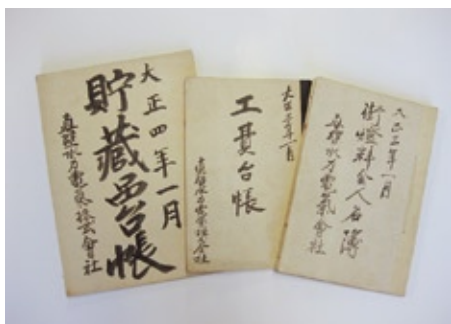 大正四年一月
貯藏品台帳
真壁水力電氣株式會社
大正三年一月
工具台帳
真壁水力電氣株式会社
大正三年一月
街燈料金人名簿
真壁水力電氣會社